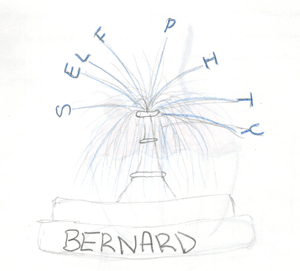 SELF PITY
BERNARD